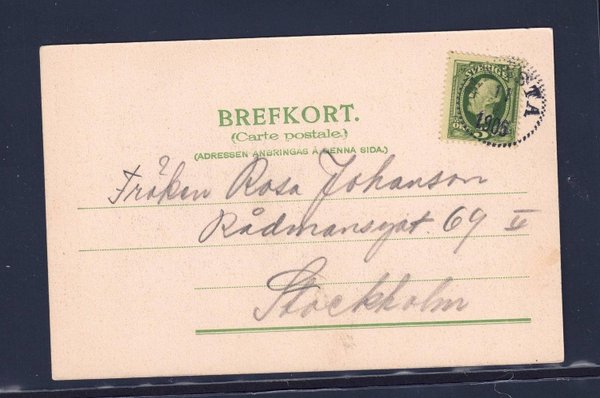 BREFKORT.
(Carte postale.)
(ADRESSEN ANBRINGAS Å DENNA SIDA.)
SVERIGE
5
STA
1906
Fröken Rosa Johanson
Rådmansgat. 69 II
Stockholm